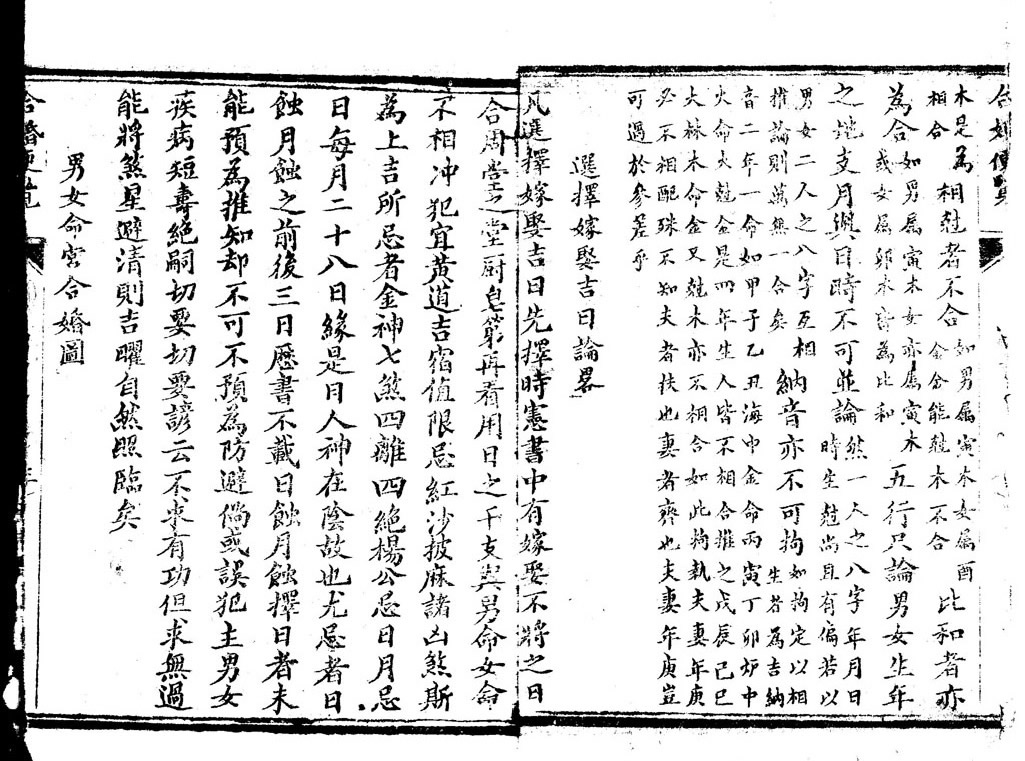 合婚便覽
木是為相合相尅者不合如男属寅木女属酉金金能尅木不合比和者亦
為合如男属寅木女亦属寅木或女属卯木皆為比和五行只論男女生年
之地支月與日時不可並論然一人之八字年月日時生尅尚且有偏若以
男女二人之八字互相推論則萬無一合矣納音亦不可拘如拘定以相生者為吉納
音二年一命如甲子乙丑海中金命丙寅丁卯炉中
火命火尅金是四年生人皆不相合推之戊辰己巳
大林木命金又尅木亦不相合如此拘執夫妻年庚
必不相配殊不知夫者扶也妻者齊也夫妻年庚豈
可過於參差乎
選擇嫁娶吉日論畧
凡選擇嫁娶吉日先擇時憲書中有嫁娶不將之日
合周堂之堂厨皂第再看用日之干支與男命女命
不相冲犯宜黃道吉宿值限忌紅沙披麻諸凶煞斯
為上吉所忌者金神七煞四離四絕楊公忌日月忌
日每月二十八日緣是日人神在陰故也尤忌者日
蝕月蝕之前後三日歷書不載日蝕月蝕擇日者未
能預為推知却不可不預為防避倘或誤犯主男女
疾病短壽絕嗣切要切要諺云不求有功但求無過
能將煞星避清則吉曜自然照臨矣
男女命宮合婚圖
合婚便覽